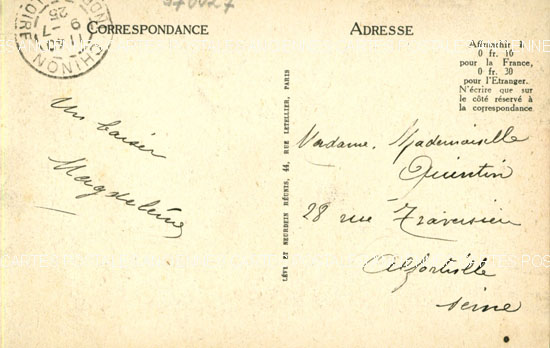 CORRESPONDANCE
ADRESSE
CHINON
Affranchir à
0 fr. 10
pour la France,
0 fr. 30
pour l'Etranger.
N'écrire que sur
le côté réservé à
la correspondance
Un baiser
Magdeleine
LÉVY ET NEURDEIN RÉUNIS, 44, RUE LETELLIER, PARIS
Madame, Mademoiselle
Quentin
28 rue Traversière
Alfortville
Seine